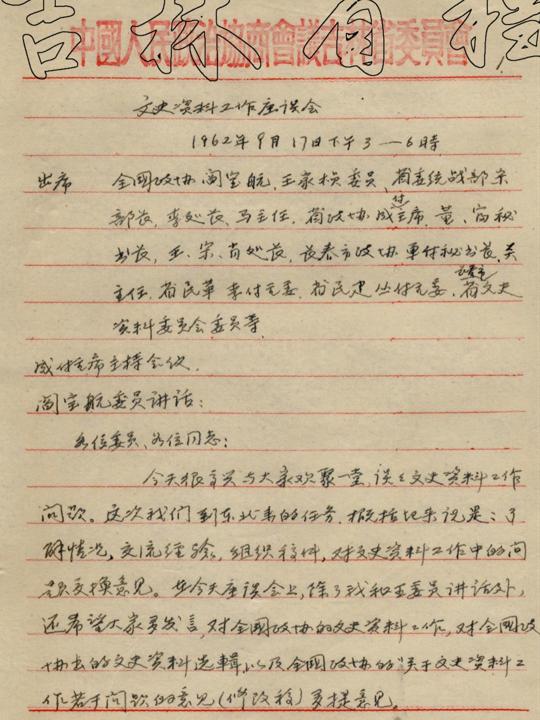 吉林省档
中國人民政治協商會議吉林省委員會
文史资料工作座谈会
1962年9月17日下午3—6時
出席 全国政协阎宝航、王家桢委员，省委统战部宋
部长、李处长、马主任，省政协成付主席、董、富秘
书长，王、宋、肖处长，长春市政协 单付秘书长、关
主任，省民革 李付主委，省民建 丛付主委，省文史
资料委员会委员等
成付主席主持会议．
阎宝航委员讲话：
各位委员、各位同志：
今天很高兴与大家欢聚一堂，谈谈文史资料工作
问题。这次我们到东北来的任务，概括地来说是：了
解情况，交流经验，组织稿件，对文史资料工作中的问
题交换意见。在今天座谈会上，除了我和王委员讲话外，
还希望大家多发言，对全国政协的文史资料工作，对全国政
协出的文史资料选輯，以及全国政协的"关于文史资料工
作若干问题的意见（修改稿）多提意见。